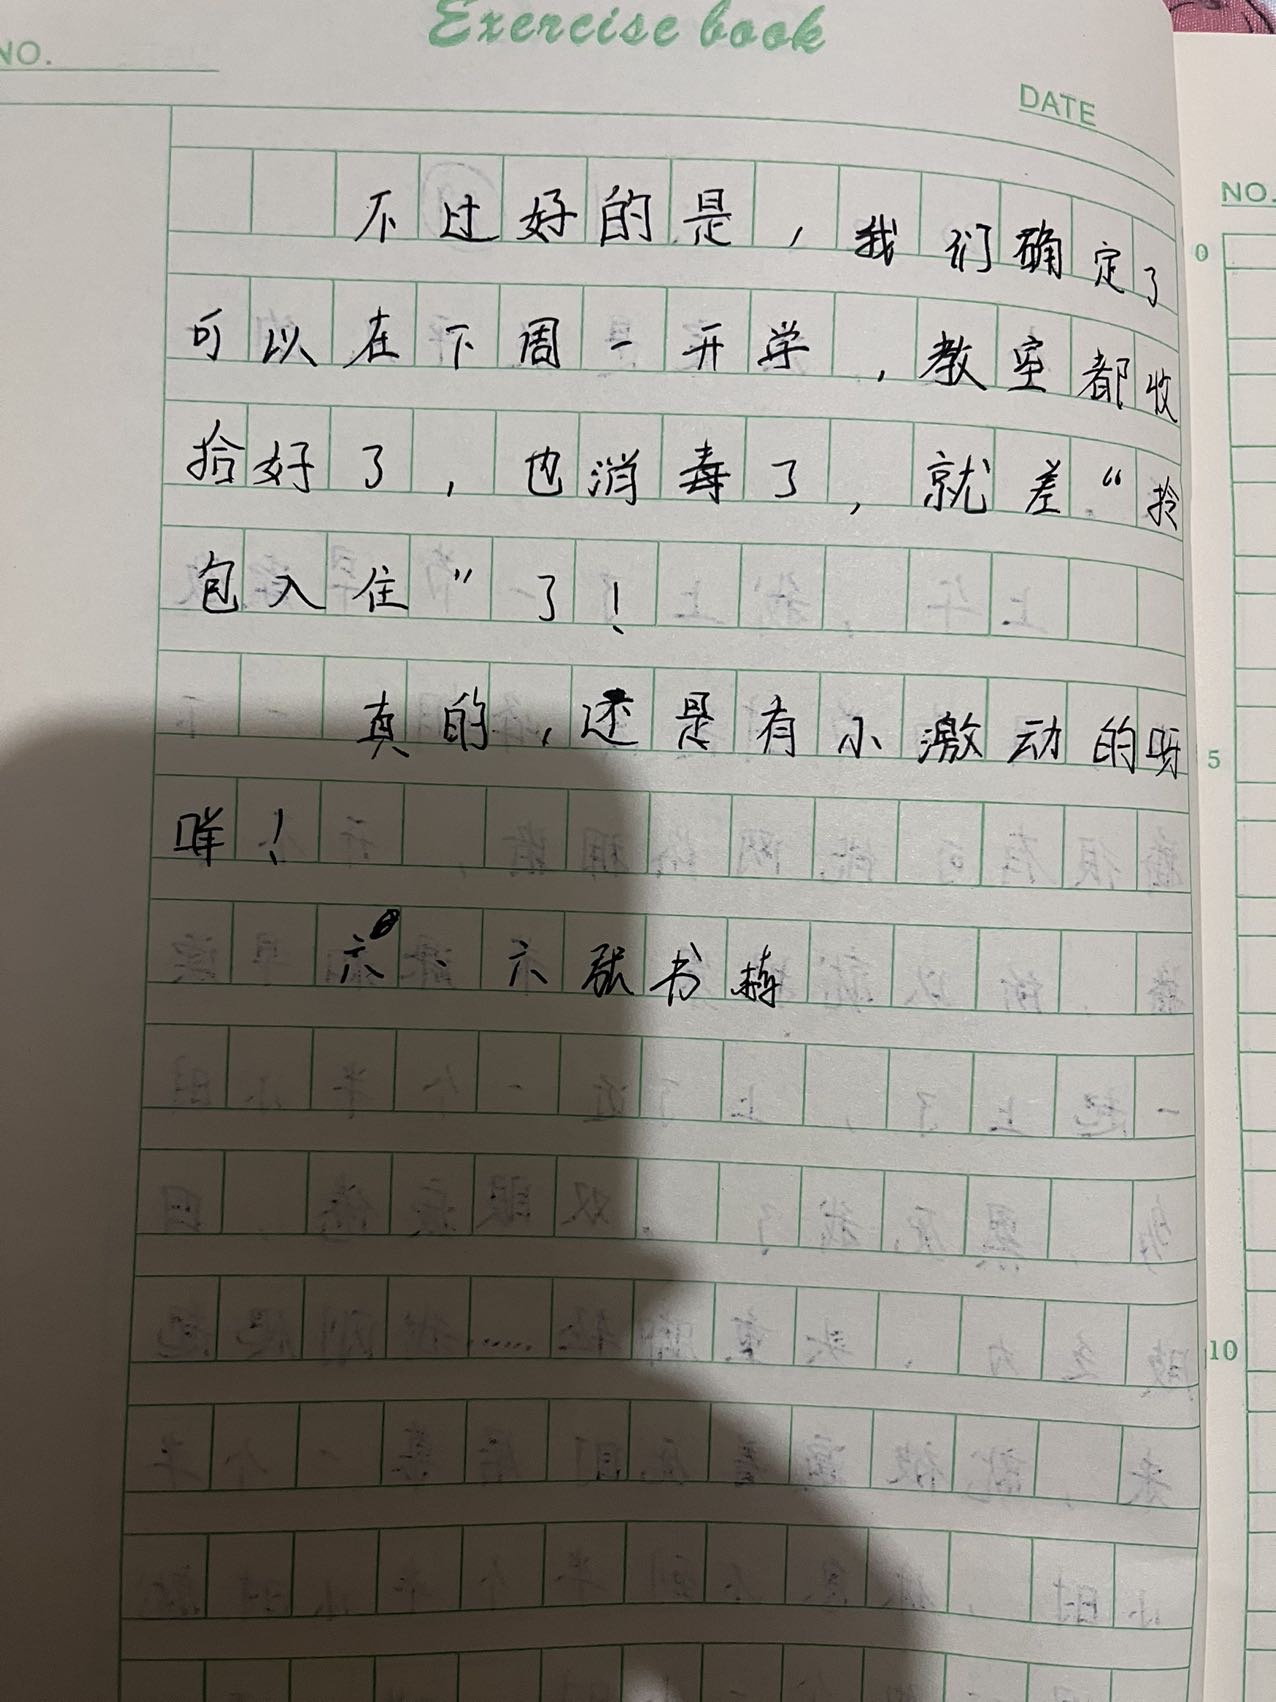 Exercise book
NO.
DATE
不过好的是，我们确定了
可以在下周一开学，教室都收
拾好了，也消毒了，就差“拎
包入住”了！
真的，还是有小激动的呀
咩！
六、六张书
NO.
0
5
10